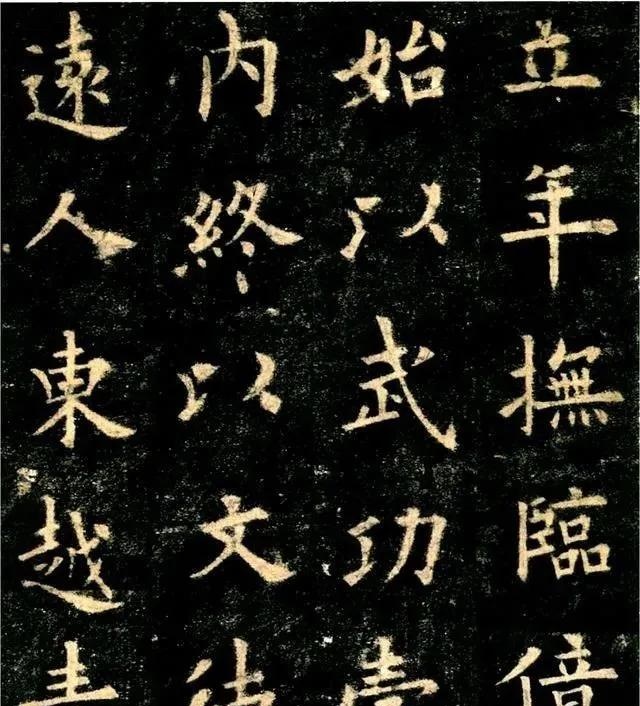 立年撫臨
始以武功
內終以文
遠人東越